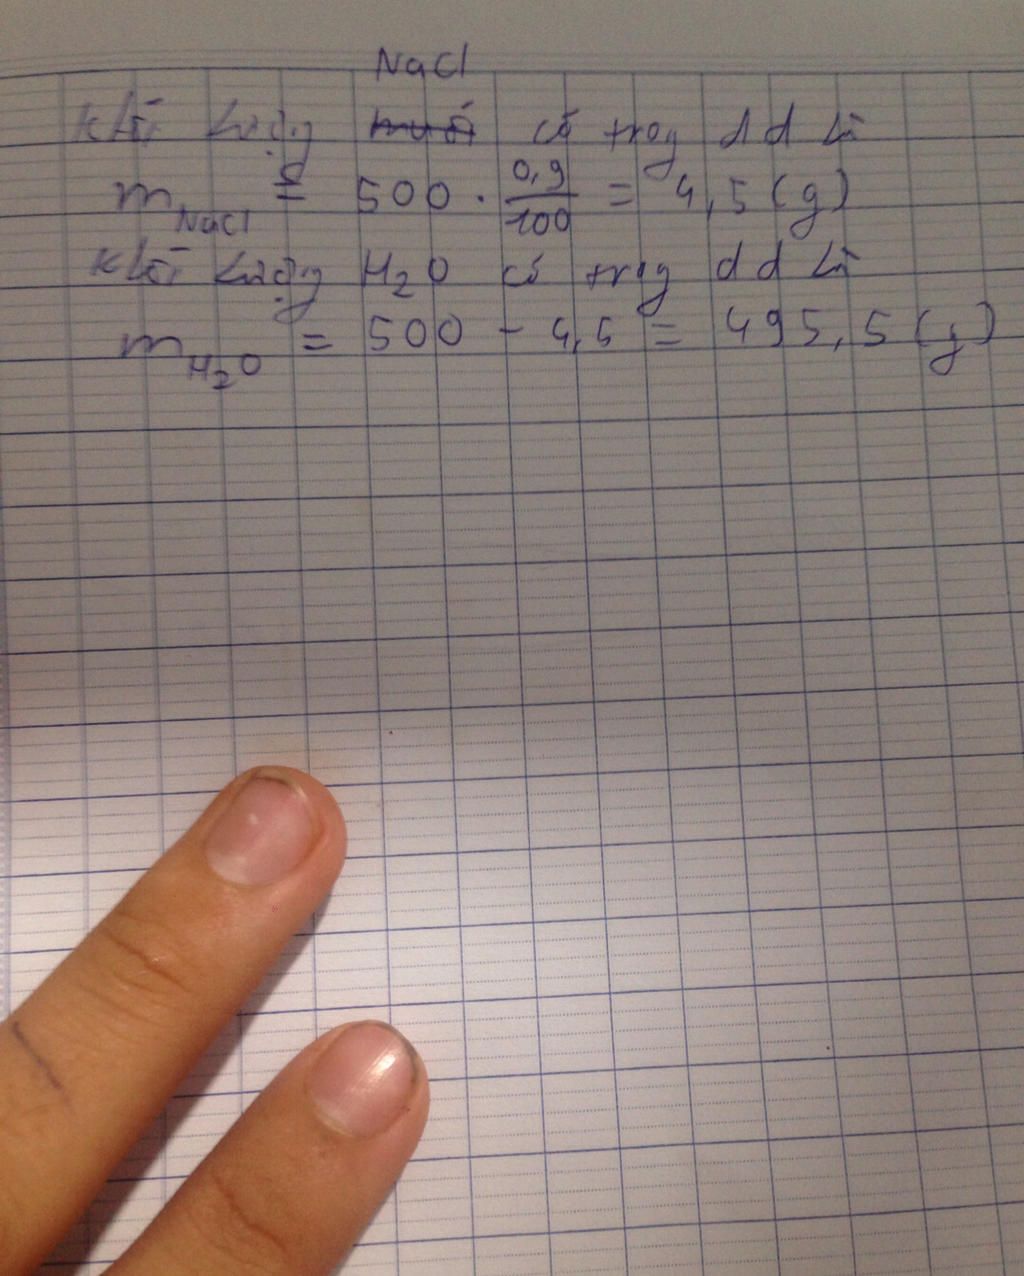 NaCl
Khối lượng muối có trog dd là
m NaCl = 500 . 0,9/100 = 4,5 (g)
Khối lượng H2O có trog dd là
m H2O = 500 - 4,5 = 495,5 (g)